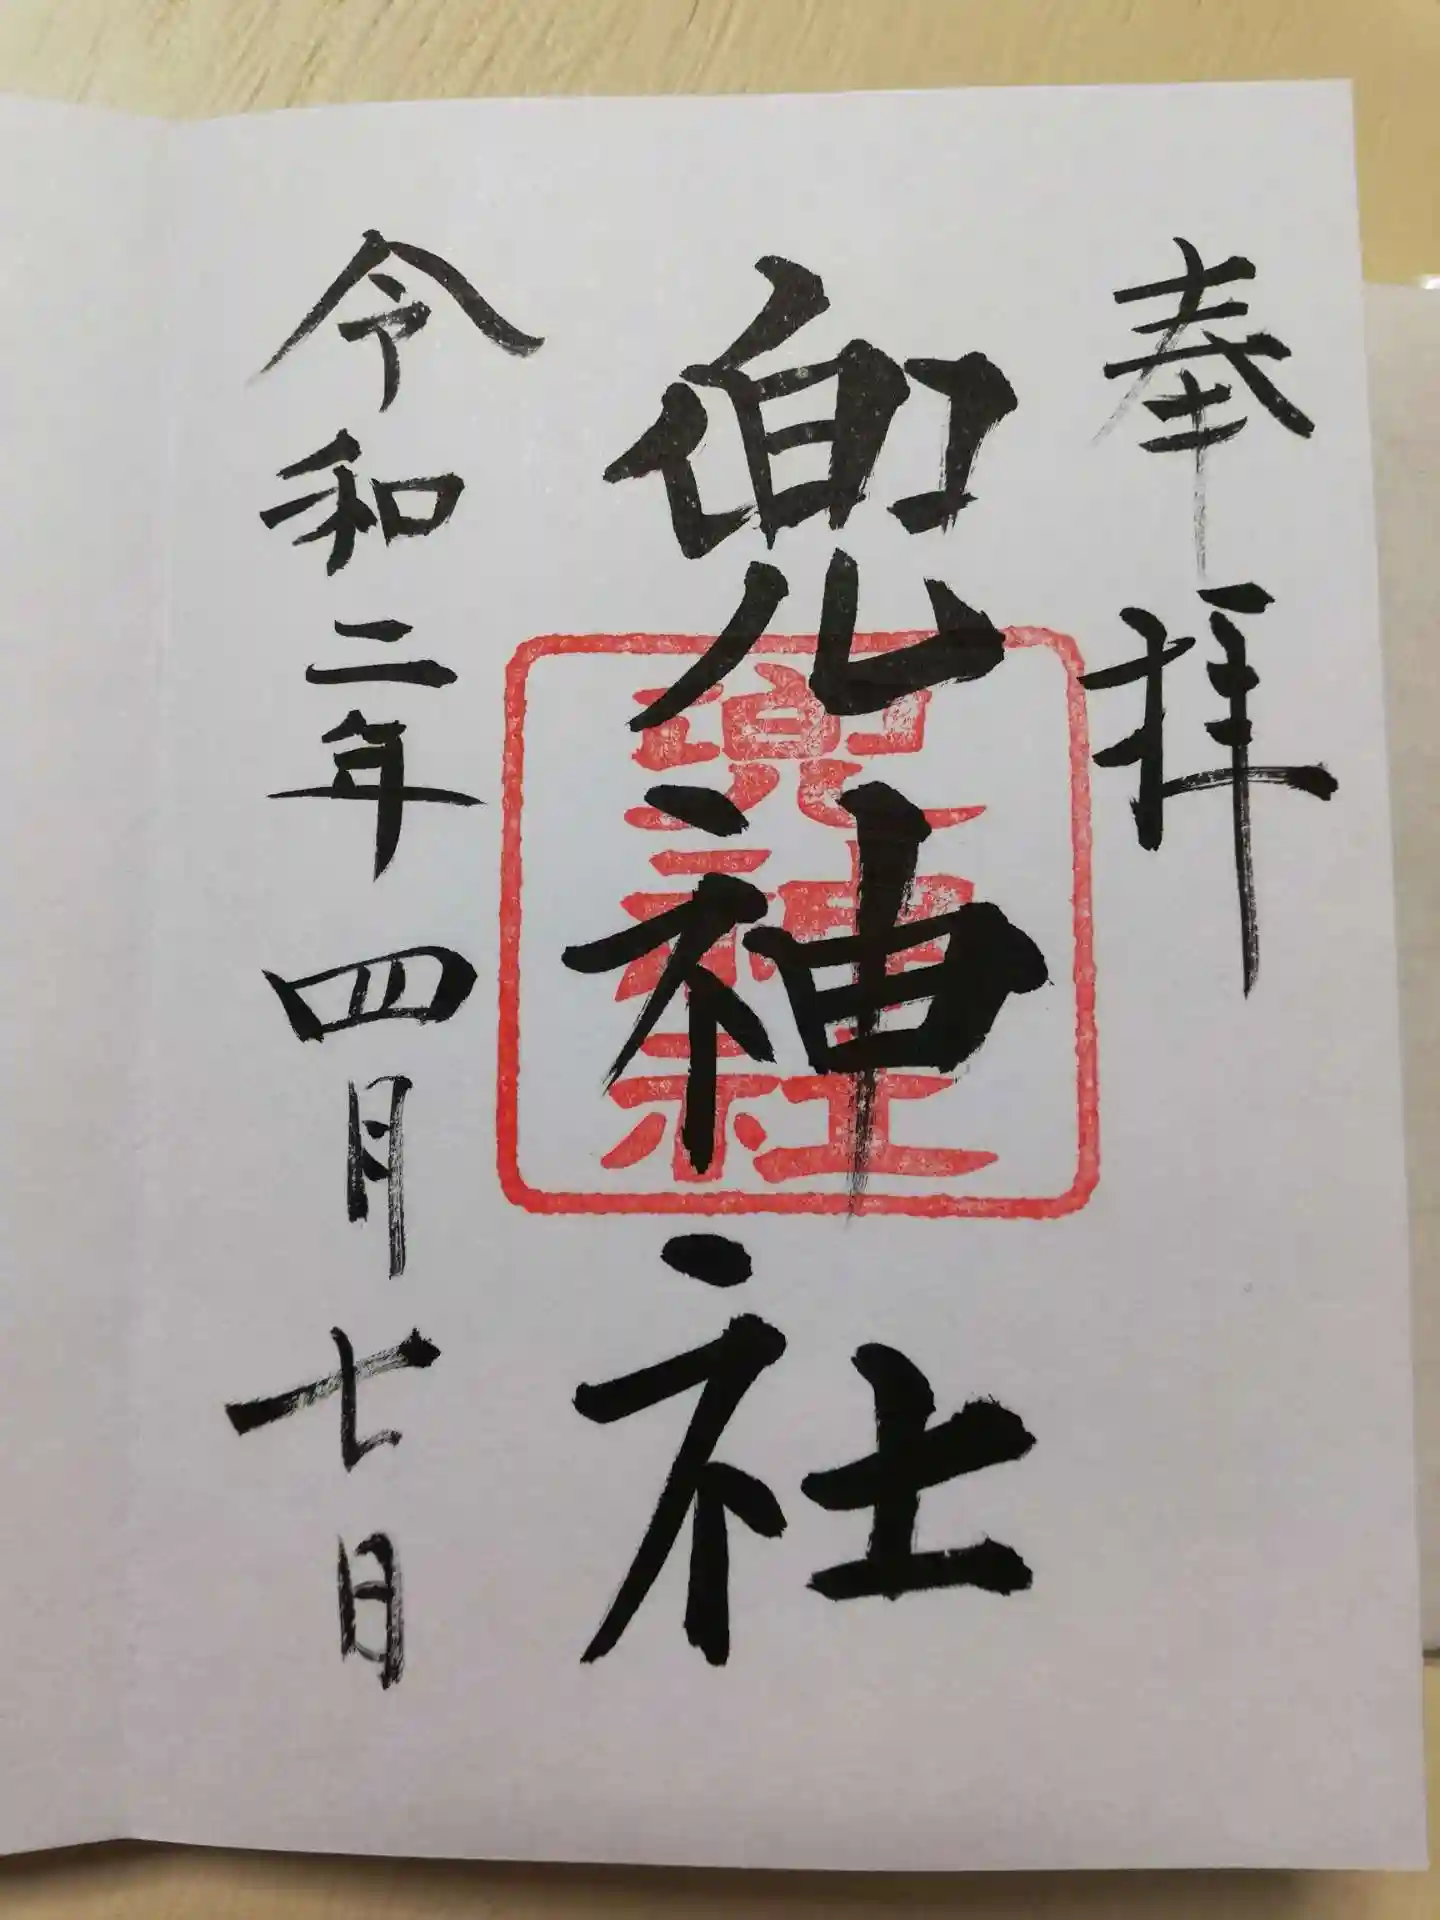 奉拝
兜神社
兜神社
令和二年四月七日